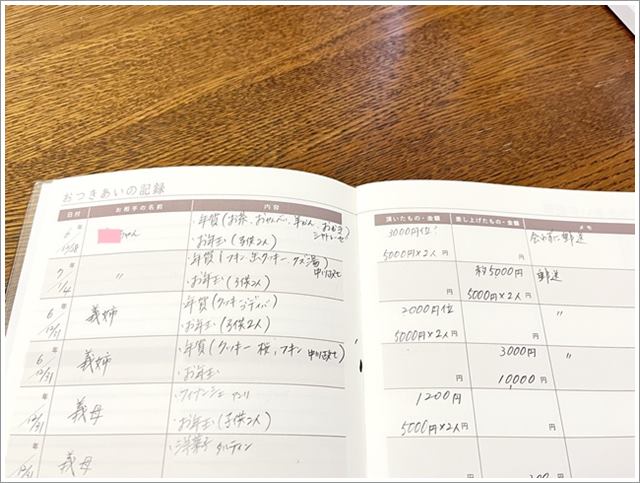 おつきあいの記録
日付 お相手の名前 内容
頂いたもの・金額 差し上げたもの・金額 メモ
6年 12/28 ちゃん ・年賀(お茶、おせんべい、
・お年玉(子供2人)
3000円位?
5000円×2人 円
7年 1/4 〃 ・年賀(フキン、
・お年玉(子供2人)
約5000円 郵送
円 5000円×2人 円
6年 12/31 義姉 ・年賀(クッキー ゴディバ)
・お年玉(子供2人)
2000円位 〃
5000円×2人 円
6年 12/31 義姉 ・年賀(クッキー 桜、フキン 中川政七)
・お年玉
3000円 〃
円 10,000円
年 12/31 義母 フィナンシェ アンリ
・お年玉(子供2人)
1200円
5000円×2人 円
年 義母 ・洋菓子
円